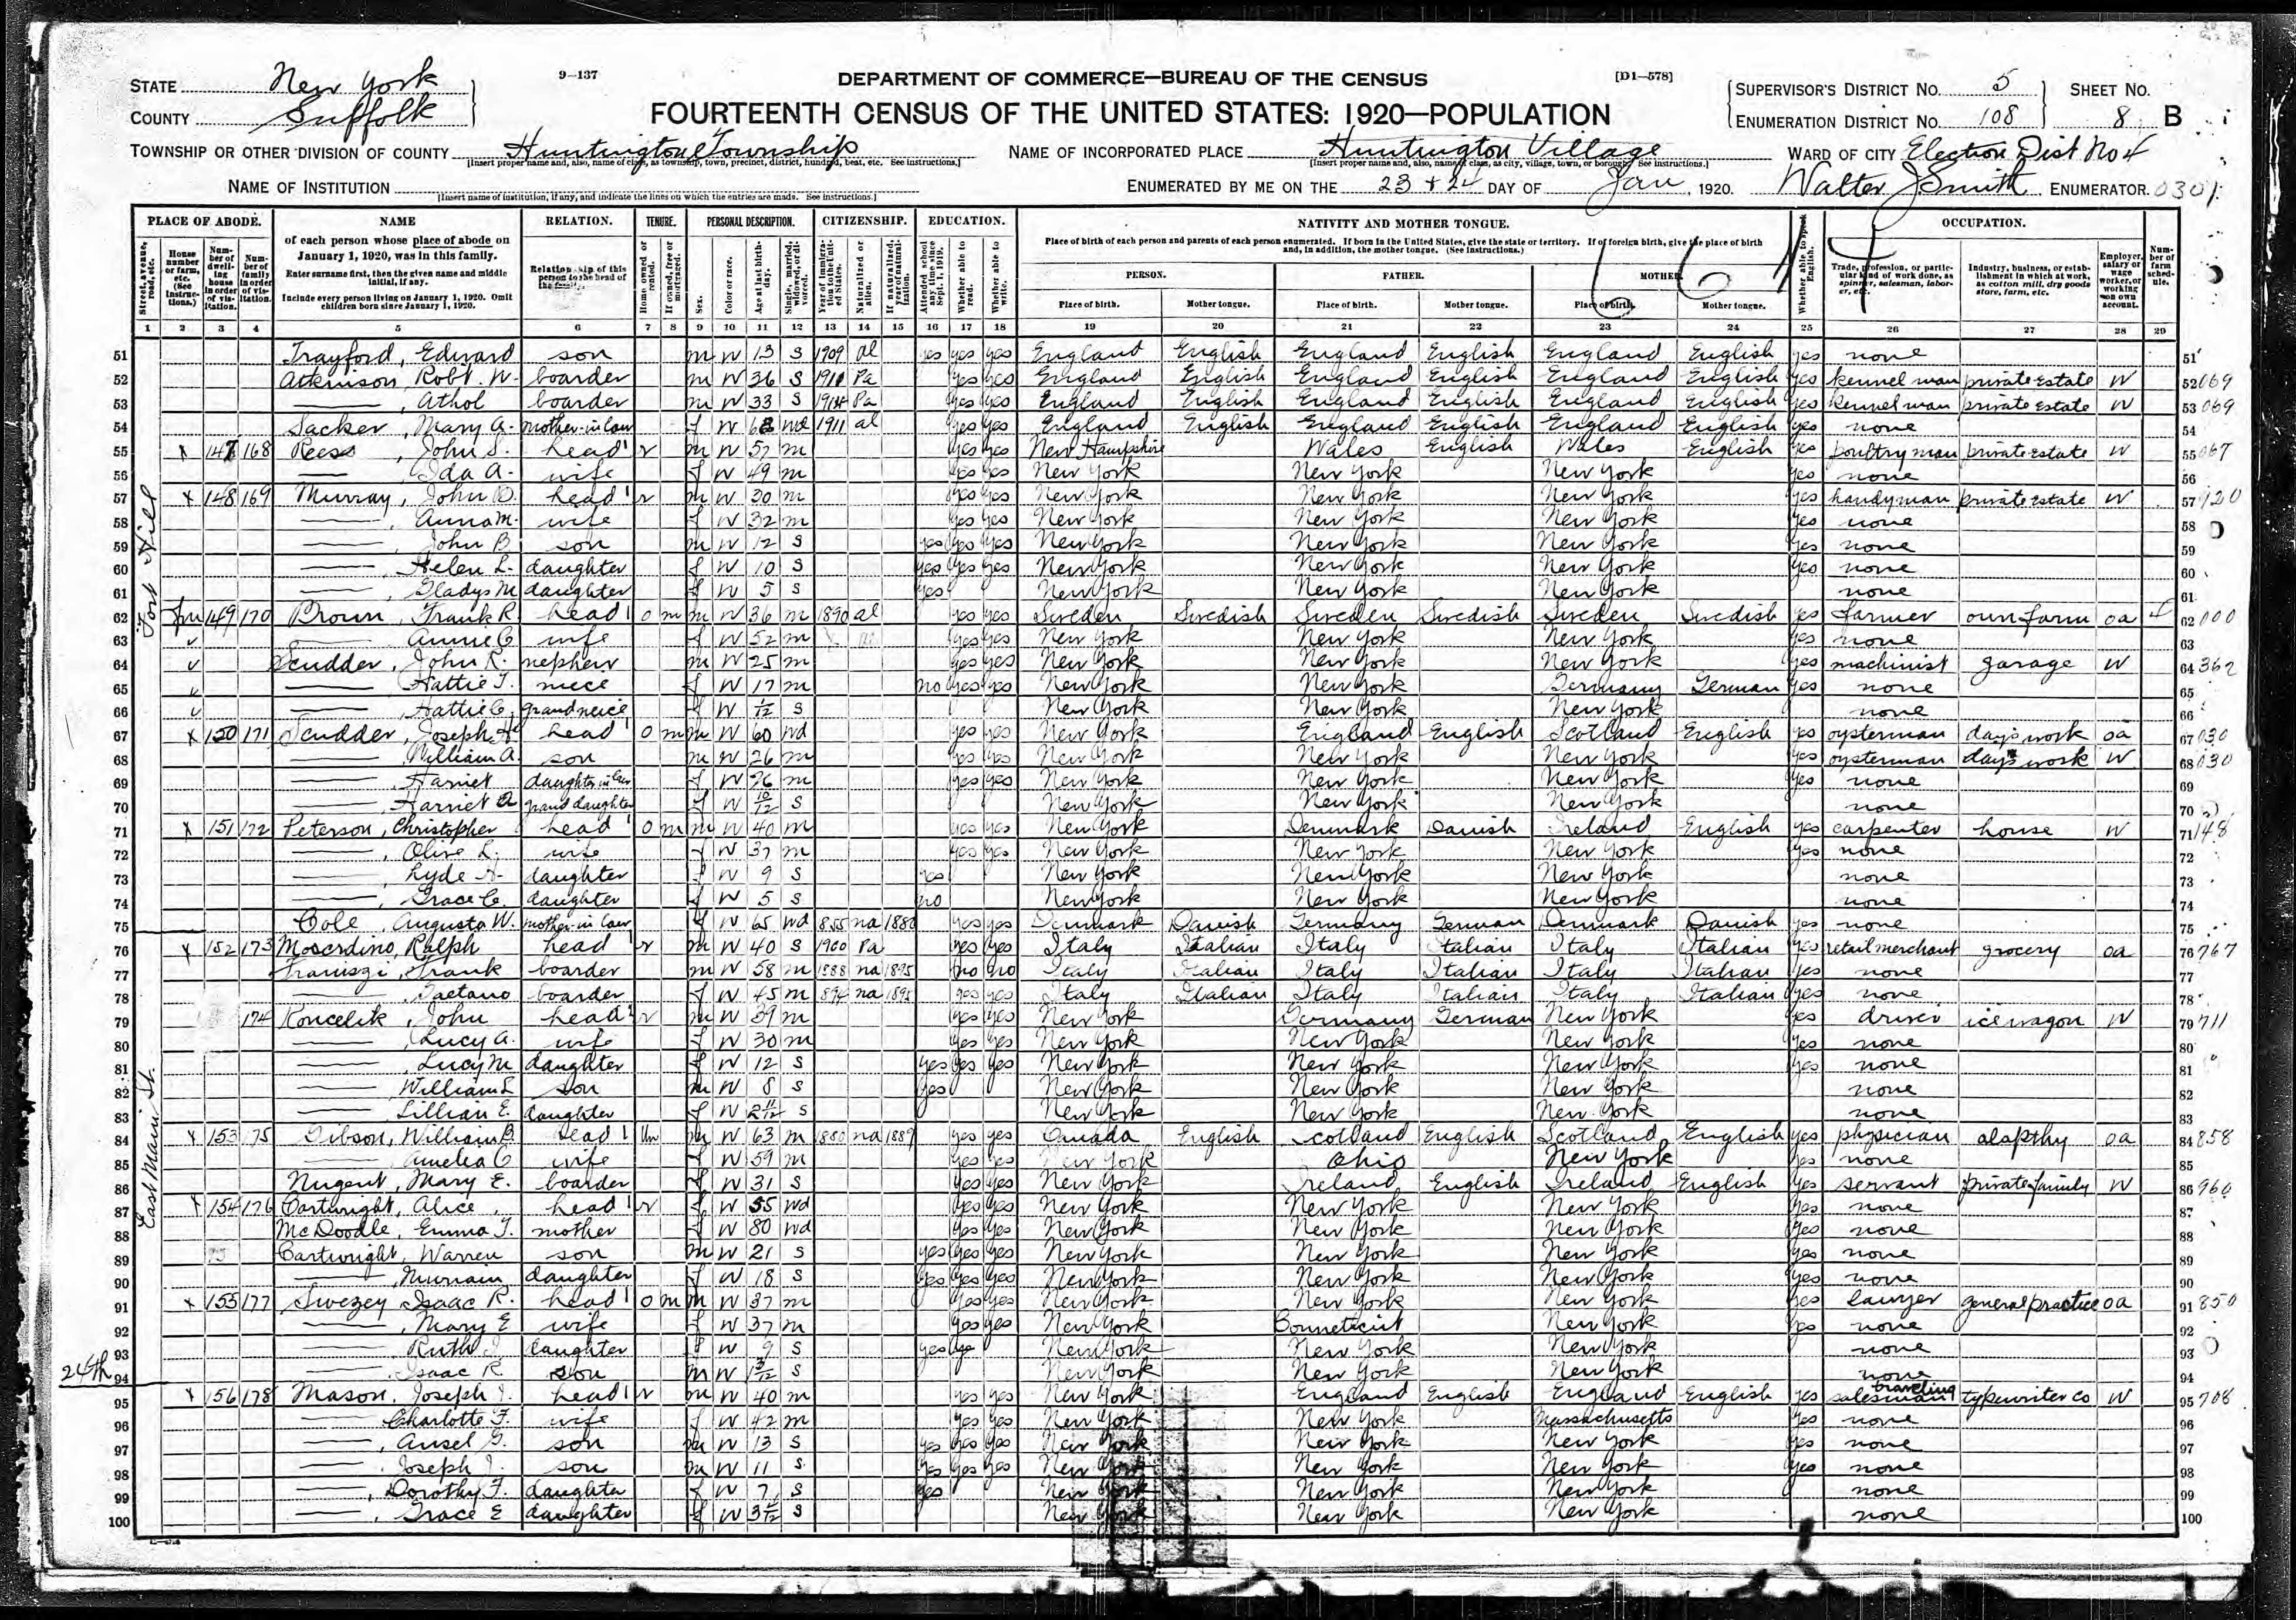 9—137
DEPARTMENT OF COMMERCE—BUREAU OF THE CENSUS
[D1—578]
STATE New York
COUNTY Suffolk
FOURTEENTH CENSUS OF THE UNITED STATES: 1920—POPULATION
SUPERVISOR'S DISTRICT No. 5 SHEET No.
ENUMERATION DISTRICT No. 108 8 B
TOWNSHIP OR OTHER DIVISION OF COUNTY Huntington Township NAME OF INCORPORATED PLACE Huntington Village WARD OF CITY Election Dist No 4
[Insert proper name and, also, name of class, as township, town, precinct, district, hundred, beat, etc. See instructions.] [Insert proper name and, also, name of class, as city, village, town, or borough. See instructions.]
NAME OF INSTITUTION ENUMERATED BY ME ON THE 23 + 24 DAY OF Jan, 1920. Walter J Smith ENUMERATOR. 0301
[Insert name of institution, if any, and indicate the lines on which the entries are made. See instructions.]
PLACE OF ABODE. NAME RELATION. TENURE. PERSONAL DESCRIPTION. CITIZENSHIP. EDUCATION. NATIVITY AND MOTHER TONGUE. OCCUPATION.
of each person whose place of abode on January 1, 1920, was in this family.
Enter surname first, then the given name and middle initial, if any.
Include every person living on January 1, 1920. Omit children born since January 1, 1920.
Place of birth of each person and parents of each person enumerated. If born in the United States, give the state or territory. If of foreign birth, give the place of birth and, in addition, the mother tongue. (See instructions.)
PERSON. FATHER. MOTHER.
Place of birth. Mother tongue. Place of birth. Mother tongue. Place of birth. Mother tongue.
1 2 3 4 5 6 7 8 9 10 11 12 13 14 15 16 17 18 19 20 21 22 23 24 25 26 27 28 29
Fort Hill
East Main St.
24th
51 Trayford, Edward son m W 13 S 1909 al yes yes yes England English England English England English yes none 51
52 Atkinson, Robt. W. boarder m W 36 S 1910 Pa yes yes England English England English England English yes kennel man private estate W 52 069
53 —, Athol boarder m W 33 S 1914 Pa yes yes England English England English England English yes kennel man private estate W 53 069
54 Sacker, Mary A. mother-in-law f W 68 wd 1911 al yes yes England English England English England English yes none 54
55 x 147 168 Rees, John S. head r m W 57 m yes yes New Hampshire Wales English Wales English yes poultry man private estate W 55 067
56 — Ida A. wife f W 49 m yes yes New York New York New York yes none 56
57 x 148 169 Murray, John B. head r m W 30 m yes yes New York New York New York yes handyman private estate W 57 120
58 —, Anna M. wife f W 32 m yes yes New York New York New York yes none 58
59 —, John B son m W 12 S yes yes yes New York New York New York yes none 59
60 —, Helen L. daughter f W 10 S yes yes yes New York New York New York yes none 60
61 —, Gladys M daughter f W 5 S yes New York New York New York none 61
62 fm 149 170 Brown, Frank R. head o m m W 36 m 1890 al yes yes Sweden Swedish Sweden Swedish Sweden Swedish yes farmer own farm oa 62 000
63 — Annie C wife f W 52 m yes yes New York New York New York yes none 63
64 Scudder, John R. nephew m W 25 m yes yes New York New York New York yes machinist garage W 64 362
65 — Hattie T. niece f W 17 m no yes yes New York New York Germany German yes none 65
66 —, Hattie C. grand neice f W 1/12 S New York New York New York none 66
67 x 150 171 Scudder, Joseph H head o m m W 60 wd yes yes New York England English Scotland English yes oysterman days work oa 67 030
68 — William A. son m W 26 m yes yes New York New York New York yes oysterman days work W 68 030
69 — Harriet daughter in law f W 26 m yes yes New York New York New York yes none 69
70 — Harriet A grand daughter f W 10/12 S New York New York New York none 70
71 x 151 172 Peterson, Christopher head o m m W 40 m yes yes New York Denmark Danish Ireland English yes carpenter house W 71 148
72 —, Olive L. wife f W 37 m yes yes New York New York New York yes none 72
73 —, Lyde A. daughter f W 9 S yes New York New York New York none 73
74 —, Grace C. daughter f W 5 S no New York New York New York none 74
75 Cole, Augusta W. mother-in law f W 65 wd 1855 na 1880 yes yes Denmark Danish Germany German Denmark Danish yes none 75
76 x 152 173 Moscrdino, Ralph head r m W 40 S 1900 Pa yes yes Italy Italian Italy Italian Italy Italian yes retail merchant grocery oa 76 767
77 Frank boarder m W 58 m 1888 na 1895 no no Italy Italian Italy Italian Italy Italian yes none 77
78 —, Gaetano boarder f W 45 m 1894 na 1895 yes yes Italy Italian Italy Italian Italy Italian yes none 78
79 174 Koncelik, John head r m W 39 m yes yes New York Germany German New York yes driver ice wagon W 79 711
80 —, Lucy A. wife f W 30 m yes yes New York New York New York yes none 80
81 —, Lucy M daughter f W 12 S yes yes yes New York New York New York yes none 81
82 — William L son m W 8 S yes New York New York New York none 82
83 — Lillian E. daughter f W 2 11/12 S New York New York New York none 83
84 x 153 175 Gibson, William B. head m W 63 m 1880 na 1889 yes yes Canada English Scotland English Scotland English yes physician alapthy oa 84 858
85 — Amelia C wife f W 59 m yes yes New York Ohio New York yes none 85
86 Nugent, Mary E. boarder f W 31 S yes yes New York Ireland English Ireland English yes servant private family W 86 960
87 x 154 176 Cartwright, Alice head r f W 55 wd yes yes New York New York New York yes none 87
88 McDoodle, Emma T. mother f W 80 wd yes yes New York New York New York yes none 88
89 Cartwright, Warren son m W 21 S yes yes yes New York New York New York yes none 89
90 —, Murriam daughter f W 18 S yes yes yes New York New York New York yes none 90
91 x 155 177 Swezey Isaac R. head o m m W 37 m yes yes New York New York New York yes lawyer general practice oa 91 850
92 —, Mary E wife f W 37 m yes yes New York Conneticut New York yes none 92
93 — Ruth J daughter f W 9 S yes ye New York New York New York none 93
94 — Isaac R son m W 1 3/12 S New York New York New York none 94
95 x 156 178 Mason, Joseph J. head r m W 40 m yes yes New York England English England English yes traveling salesman typewriter co W 95 708
96 — Charlotte F. wife f W 42 m yes yes New York New York Massachusetts yes none 96
97 —, Ansel G. son m W 13 S yes yes yes New York New York New York yes none 97
98 — Joseph J. son m W 11 S yes yes yes New York New York New York yes none 98
99 —, Dorothy F. daughter f W 7 S yes New York New York New York none 99
100 —, Grace E daughter f W New York New York New York none 100